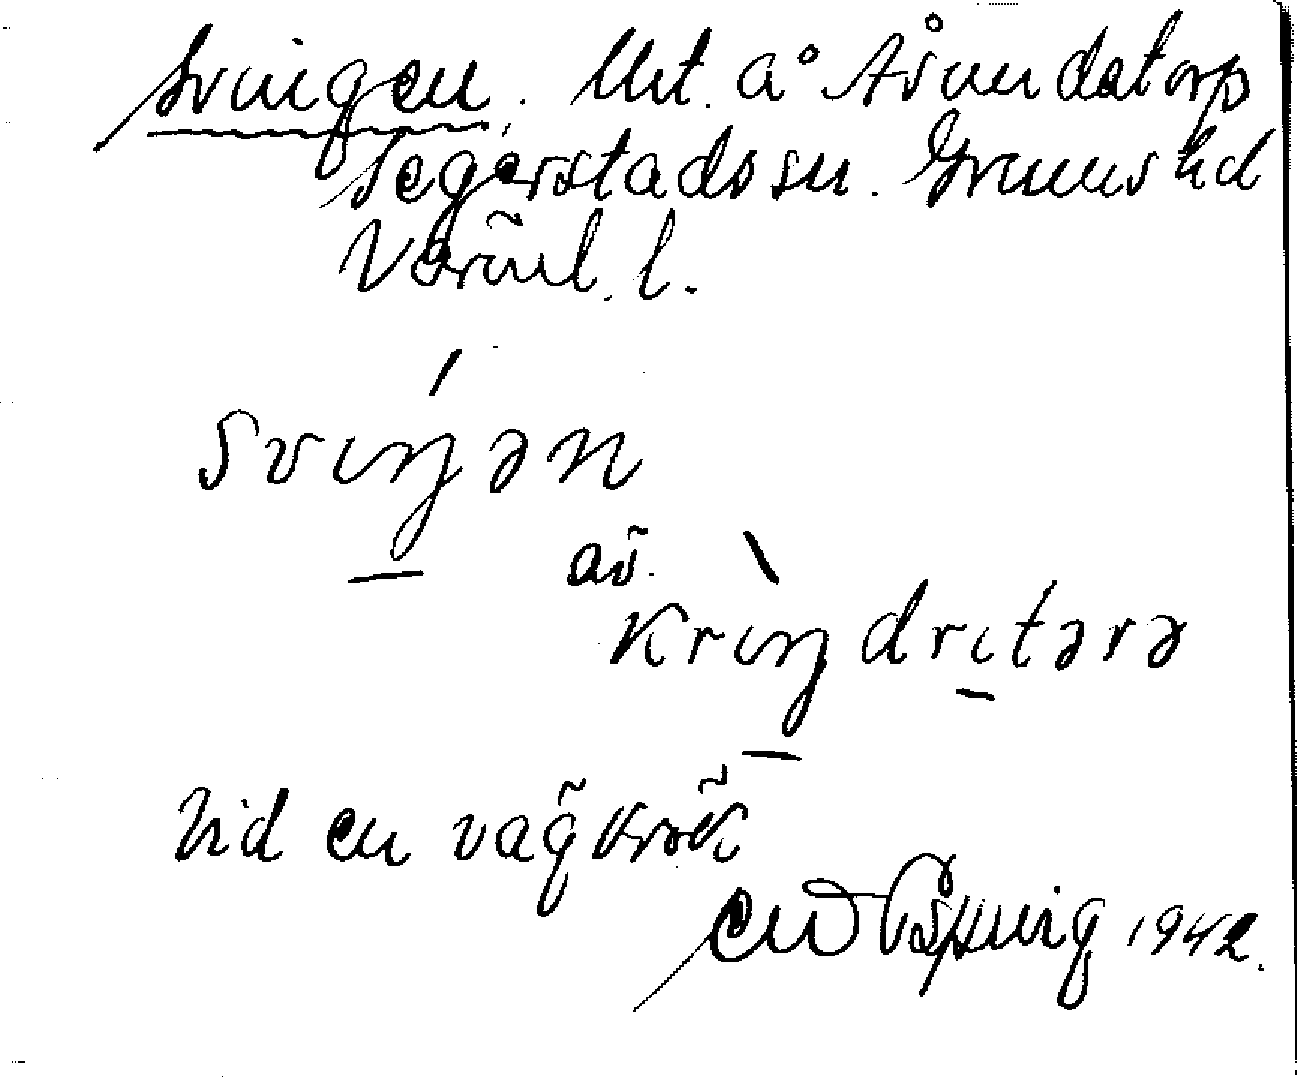 Svingen. Urt. å Åvendatorp
Segerstads sn. Grums hd
Värml. l.
sviŋən
av.
kriŋdritərə
Vid en vägkrök
1942.